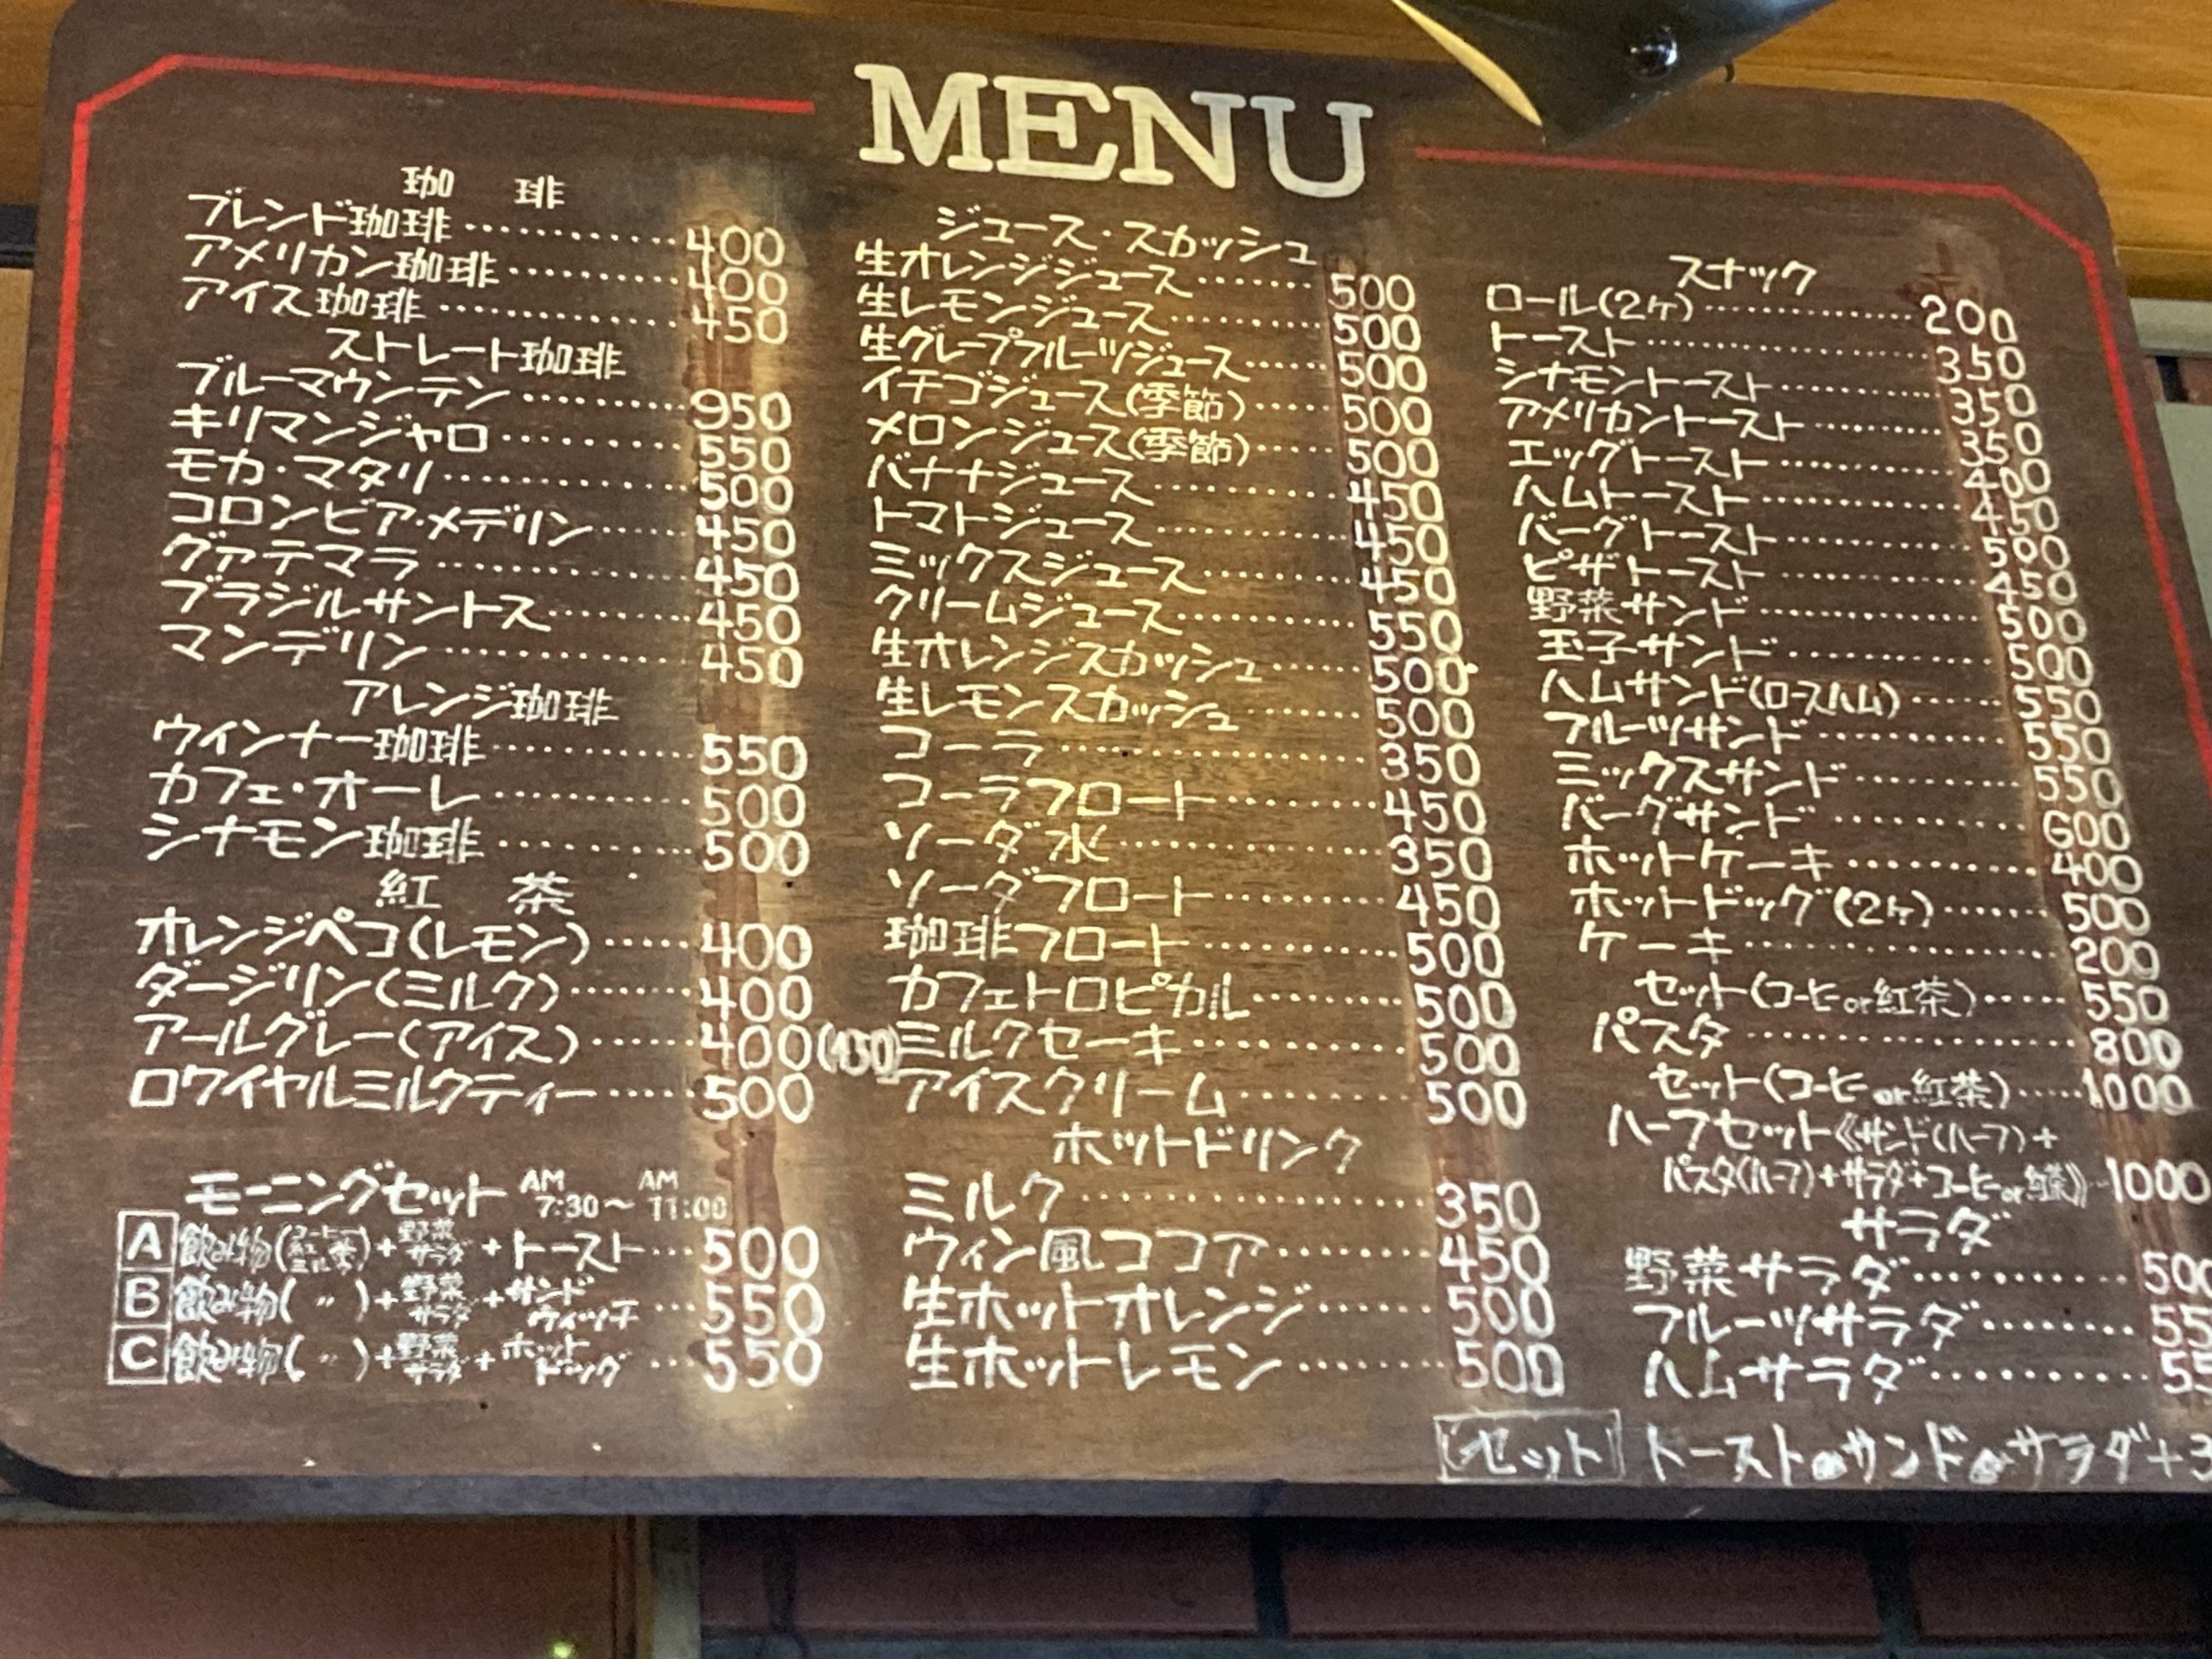 MENU
珈 琲
ブレンド珈琲…………400
アメリカン珈琲…………400
アイス珈琲…………450
ストレート珈琲
ブルーマウンテン…………950
キリマンジャロ…………550
モカ・マタリ…………500
コロンビア・メデリン……450
グァテマラ…………450
ブラジルサントス………450
マンデリン…………450
アレンジ珈琲
ウインナー珈琲…………550
カフェ・オーレ…………500
シナモン珈琲…………500
紅 茶
オレンジペコ(レモン)……400
ダージリン(ミルク)………400
アールグレー(アイス)……400(450)
ロワイヤルミルクティー……500
モーニングセット AM7:30〜AM11:00
A 飲み物(コーヒー 紅茶 ミルク)+野菜サラダ+トースト…500
B 飲み物( 〃 )+野菜サラダ+サンドウィッチ…550
C 飲み物( 〃 )+野菜サラダ+ホットドッグ…550
ジュース・スカッシュ
生オレンジジュース………500
生レモンジュース…………500
生グレープフルーツジュース……500
イチゴジュース(季節)……500
メロンジュース(季節)……500
バナナジュース…………450
トマトジュース…………450
ミックスジュース…………450
クリームジュース…………550
生オレンジスカッシュ……500
生レモンスカッシュ………500
コーラ…………350
コーラフロート…………450
ソーダ水…………350
ソーダフロート…………450
珈琲フロート…………500
カフェトロピカル…………500
ミルクセーキ…………500
アイスクリーム…………500
ホットドリンク
ミルク…………350
ウィン風ココア…………450
生ホットオレンジ………500
生ホットレモン…………500
スナック
ロール(2ヶ)…………200
トースト…………350
シナモントースト…………350
アメリカントースト………350
エッグトースト…………400
ハムトースト…………450
バーグトースト…………500
ピザトースト…………450
野菜サンド…………500
玉子サンド…………500
ハムサンド(ロースハム)……550
フルーツサンド…………550
ミックスサンド…………550
バーグサンド…………600
ホットケーキ…………400
ホットドッグ(2ヶ)……500
ケーキ…………200
セット(コーヒーor紅茶)……550
パスタ…………800
セット(コーヒーor紅茶)……1000
ハーフセット《サンド(ハーフ)+
パスタ(ハーフ)+サラダ+コーヒーor紅茶》…1000
サラダ
野菜サラダ…………500
フルーツサラダ…………55
ハムサラダ…………55
セット トースト・サンド・サラダ+3